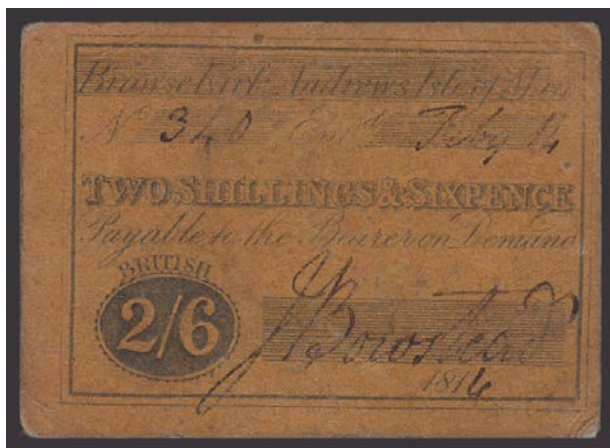 Kirk Andrews Isle of Man
No 340 Entd Feby
TWO SHILLINGS & SIXPENCE
Payable to the Bearer on Demand
BRITISH
2/6
J Bowstead
1816